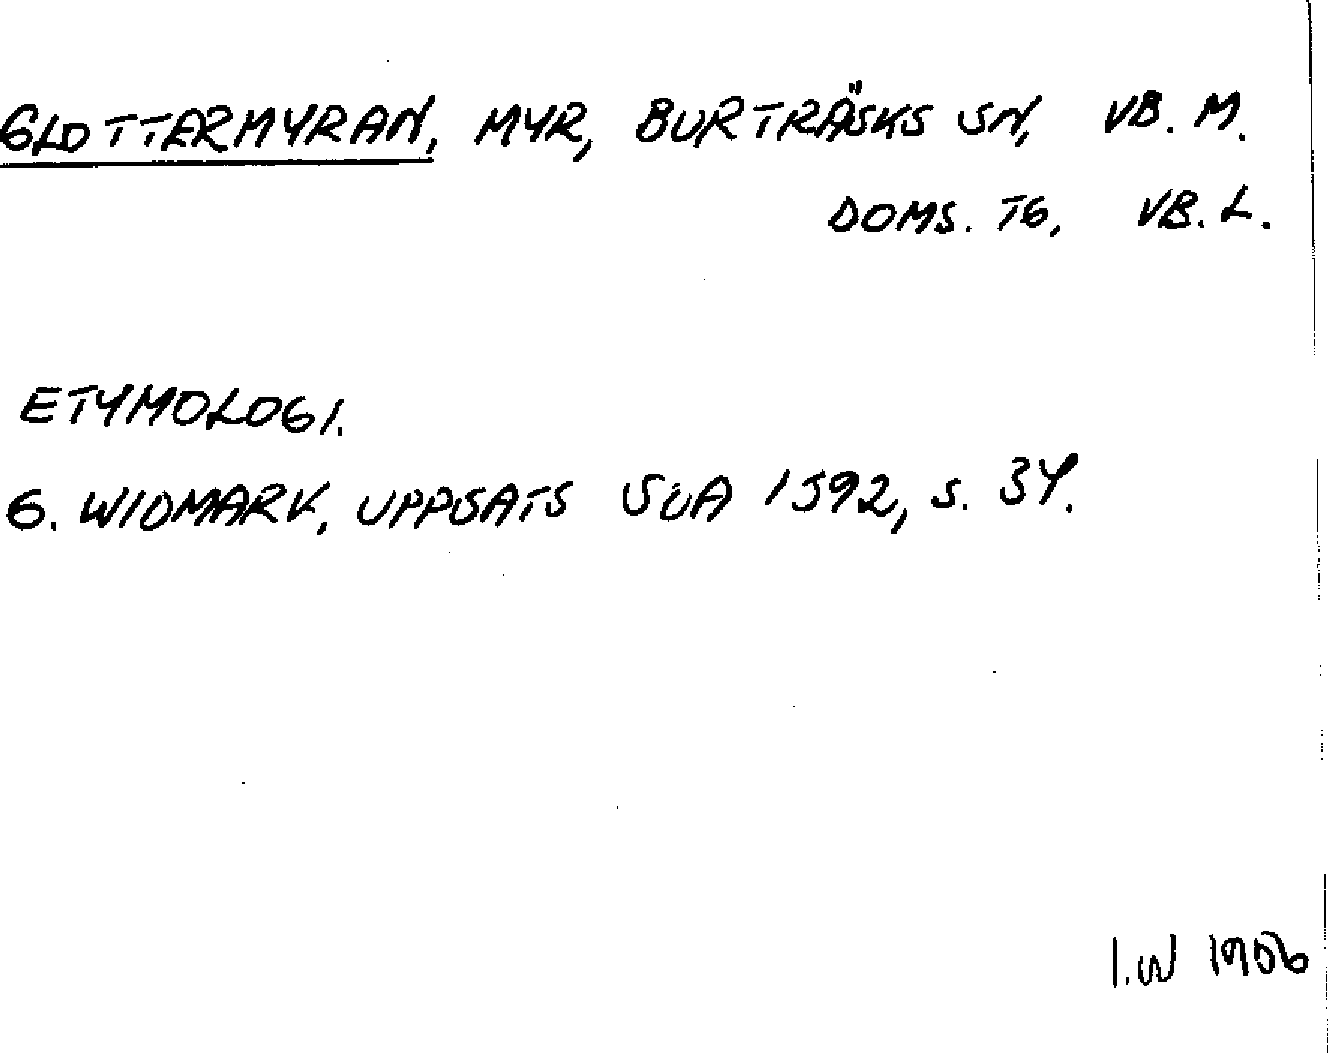 GLOTTERMYRAN, MYR, BURTRÄSKS SN, VB. M.
DOMS. TG, VB. L.
ETYMOLOGI.
G. WIDMARK, UPPSATS SOA 1592, s. 34.
I.W